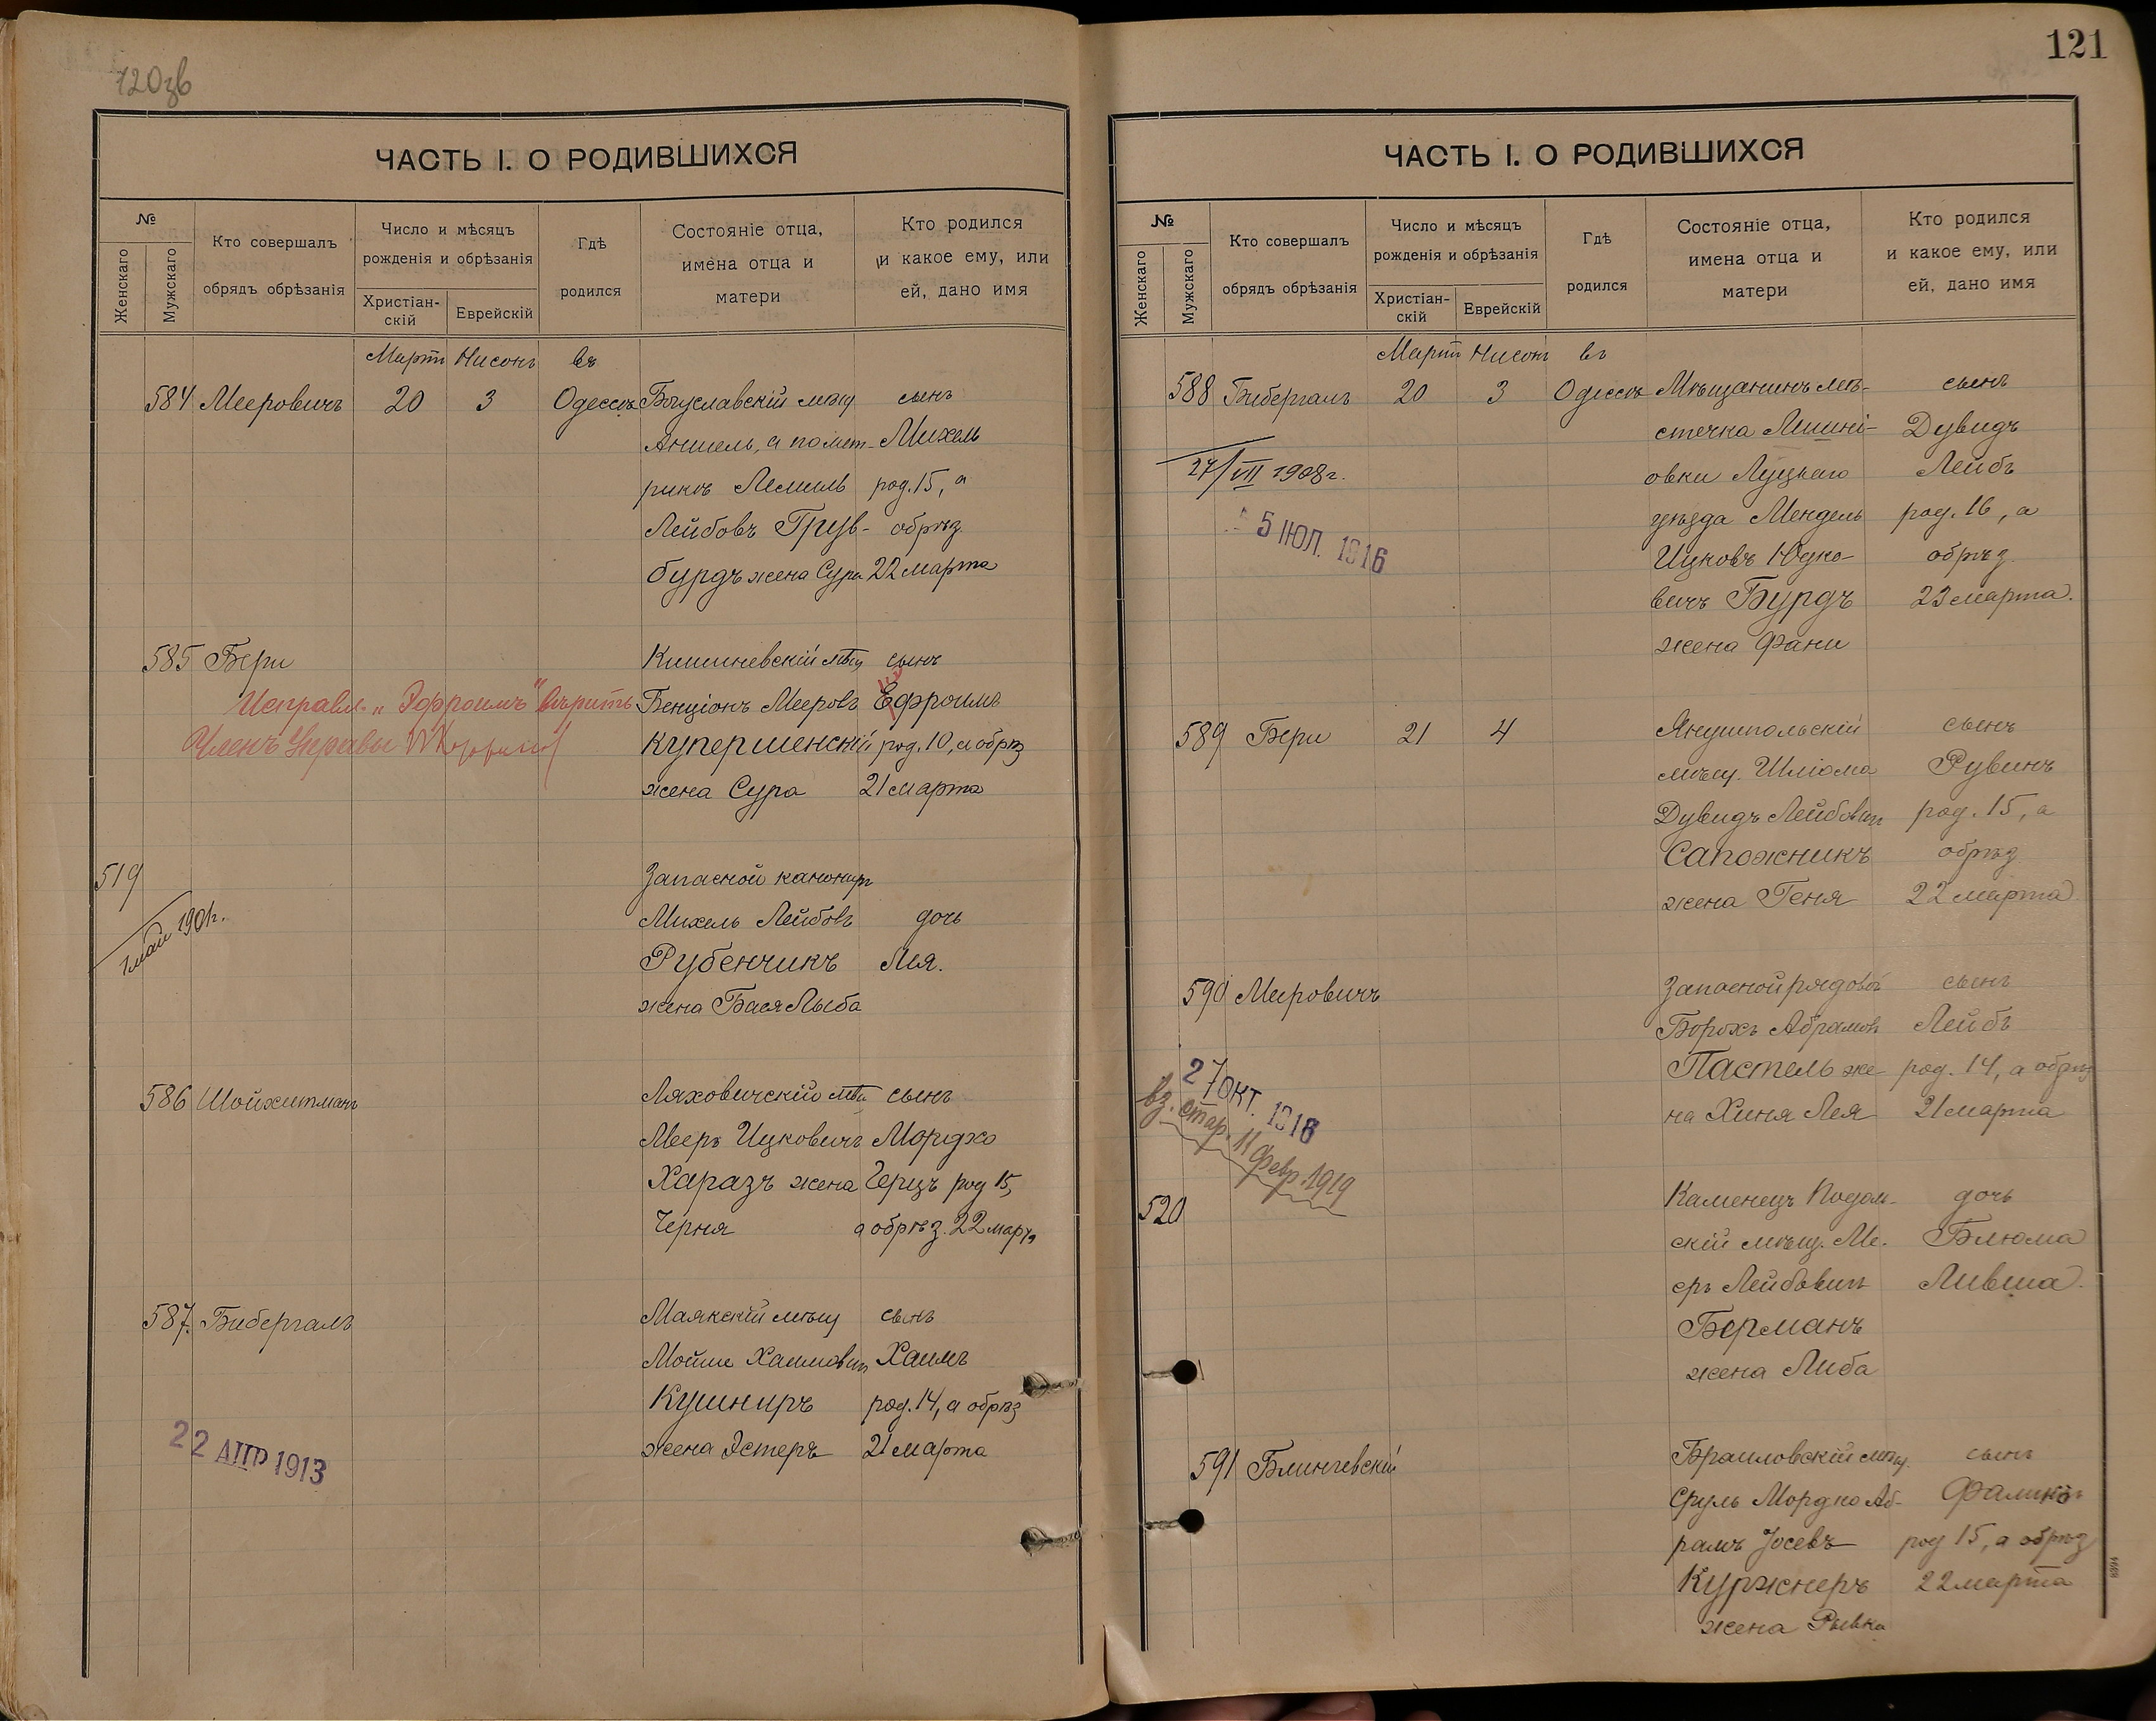 120зв
ЧАСТЬ I. О РОДИВШИХСЯ
№
Женскаго
Мужскаго
Кто совершалъ
обрядъ обрѣзанія
Число и мѣсяцъ
рожденія и обрѣзанія
Христіан-
скій
Еврейскій
Гдѣ
родился
Состояніе отца,
имена отца и
матери
Кто родился
и какое ему, или
ей, дано имя
Мартъ Нисонъ въ
584 Мееровичъ 20 3 Одессѣ Богуславскій мѣщ сынъ
Аншель, а по метр- Михель
рикѣ род. 15, а
Лейбовъ обрѣз.
бурдъ жена Сура 22 марта
585 Бери Кишиневскій мѣщ сынъ
Исправл. "Эфроимъ" вѣрить Бенціонъ Мееровъ Ефроимъ
Членъ Управы Купершенскій род. 10, а обрѣз
жена Сура 21 марта
519 Запасной канониръ
1 май 1901г. Михель Лейбовъ дочь
Рубенчикъ Лея.
жена Бася Лыба
586 Шойхетманъ Ляховичскій мѣщ сынъ
Мееръ Ицковичъ Мордхо
Харазъ жена Герцъ род 15,
Черня а обрѣз. 22 марта
587. Бибергалъ Маякскій мѣщ сынъ
Мойше Хаимовичъ Хаимъ
Кушниръ род. 14, а обрѣз
жена Эстеръ 21 марта
22 АПР 1913
121
ЧАСТЬ I. О РОДИВШИХСЯ
№
Женскаго
Мужскаго
Кто совершалъ
обрядъ обрѣзанія
Число и мѣсяцъ
рожденія и обрѣзанія
Христіан-
скій
Еврейскій
Гдѣ
родился
Состояніе отца,
имена отца и
матери
Кто родился
и какое ему, или
ей, дано имя
Мартъ Нисонъ въ
588 Бибергалъ 20 3 Одессѣ Мѣщанинъ мѣ- сынъ
стечка Дувидъ
27/VII 1908г. овки Луцкаго Лейбъ
5 ІЮЛ. 1916 уѣзда Мендель род. 16, а
Ицковъ Юдко- обрѣз.
вичъ Бурдъ 23 марта.
жена Фани
589 Бери 21 4 Янушпольскій сынъ
мѣщ. Шліома Рувинъ
Дувидъ Лейбовичъ род. 15, а
Сапожникъ обрѣз
жена Геня 22 марта
590 Мееровичъ Запасной рядовой сынъ
Борохъ Абрамовъ Лейбъ
27 ОКТ. 1916 Пастель же- род. 14, а обрѣз
вз. стар. 11 февр. 1919 на Хиня Лея 21 марта
520 Каменецъ Подоль- дочь
скій мѣщ. Ме- Блюма
еръ Лейбовичъ Ливша
Берманъ
жена Либа
591 Блинчевскій Браиловскій мѣщ. сынъ
Сруль Мордко Аб- Фаликъ
рамъ Іосевъ род 15, а обрѣз
Куржнеръ 22 марта
жена Рывка